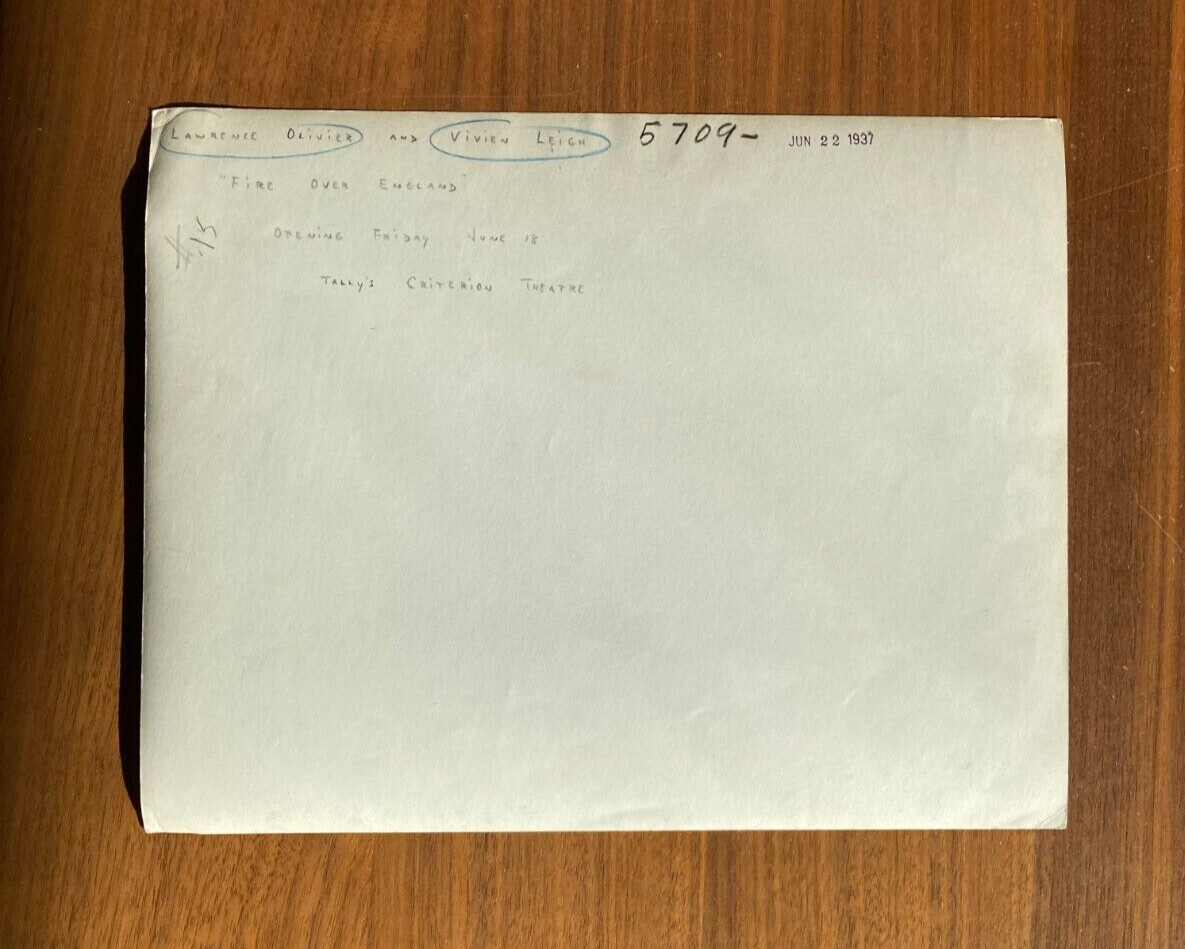 LAWRENCE OLIVIER AND VIVIEN LEIGH 5709- JUN 22 1937
"FIRE OVER ENGLAND"
OPENING FRIDAY JUNE 18
TALLY'S CRITERION THEATRE